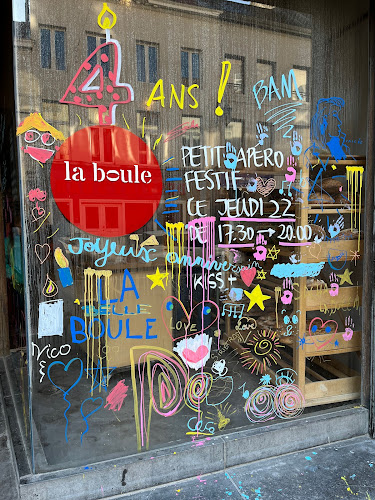 4
ANS !
BAM
la boule
PETIT APERO
FESTIF
CE JEUDI 22
DE 17.30 → 20.00
Joyeux anniv
KISS
LA
BELLE
BOULE
LOVE
Love
NICO